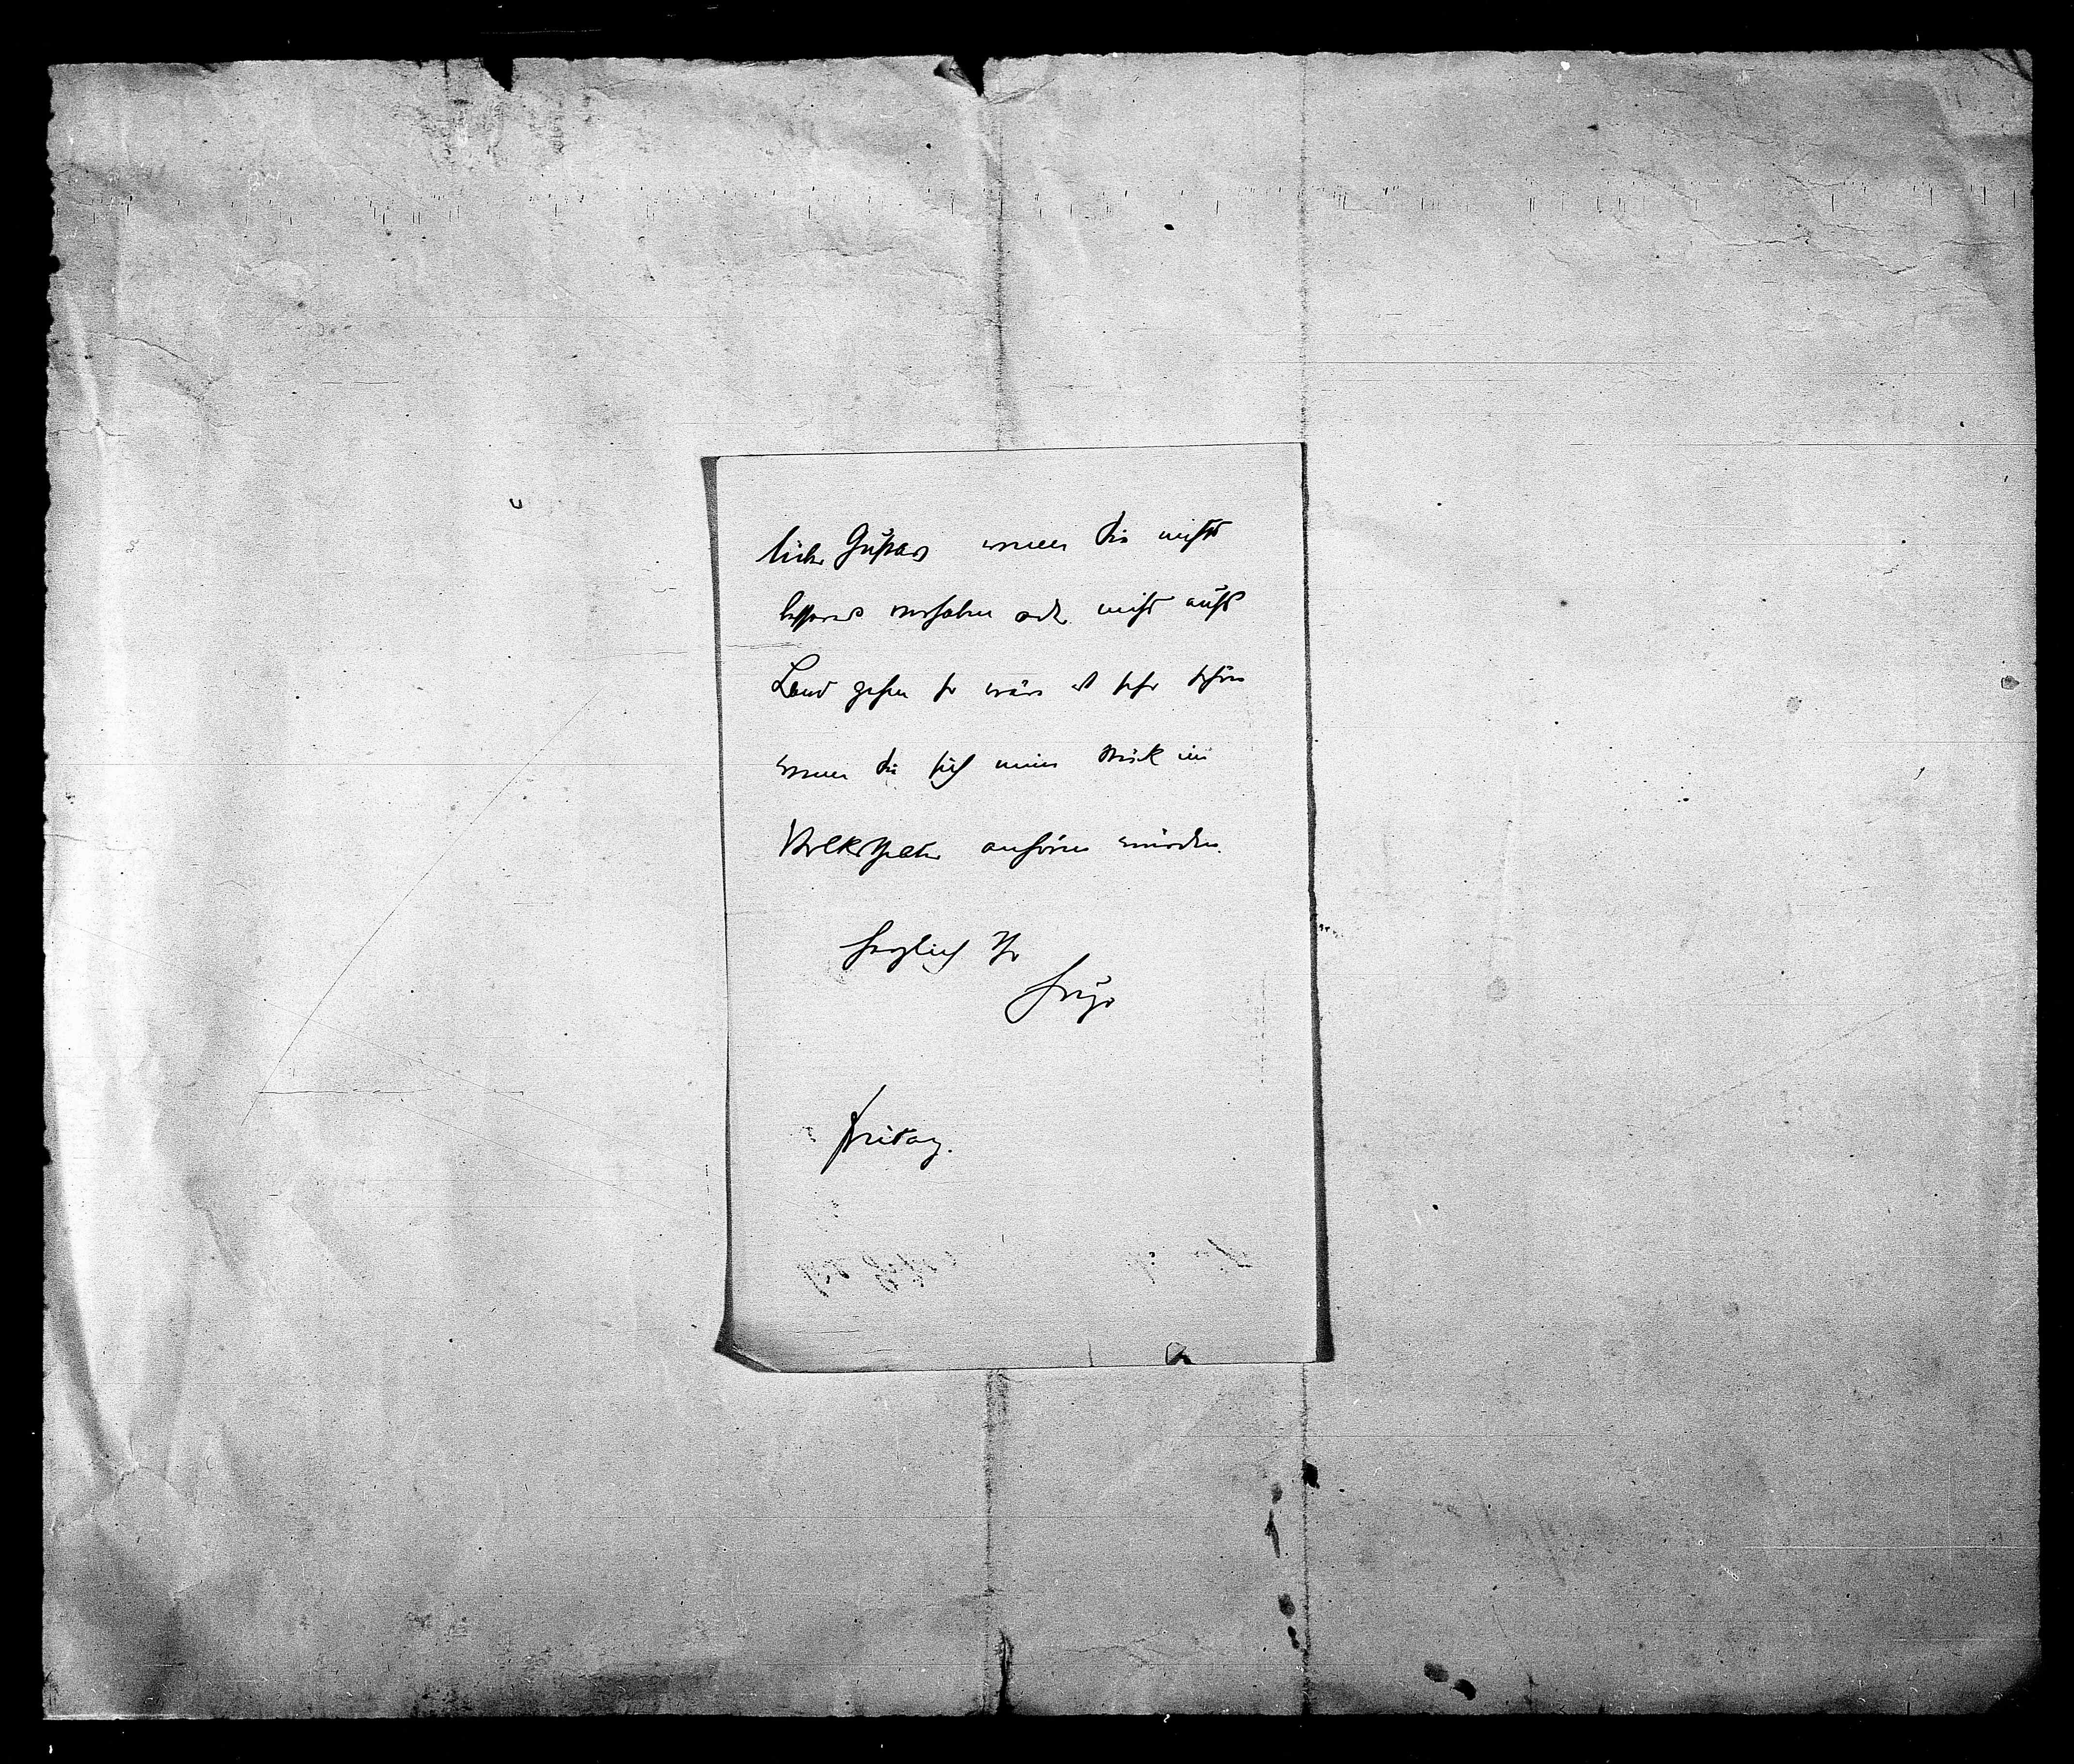 lieber Gustav wenn Sie nichts
besseres vorhaben oder nicht aufs
Land gehen so wäre es sehr schön
wenn Sie sich mein Stück im
Volkstheater anhören würden.
herzlich Ihr
Hugo
Freitag.